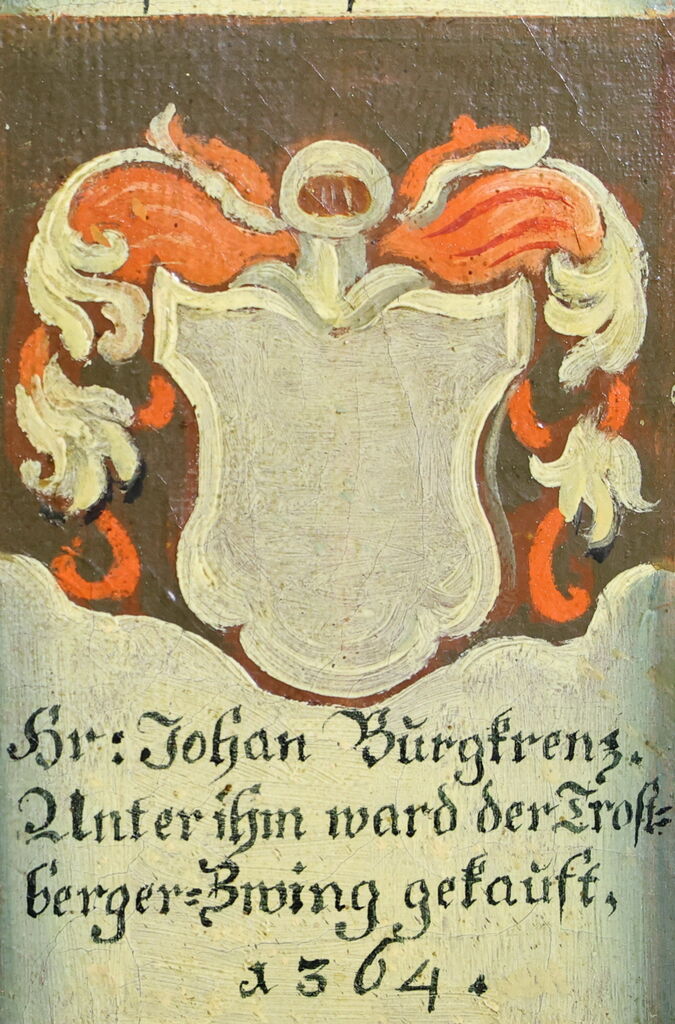 Hr: Johan Burgkrenz.
Unter ihm ward der Trost-
berger-Zwing gekauft,
1364.